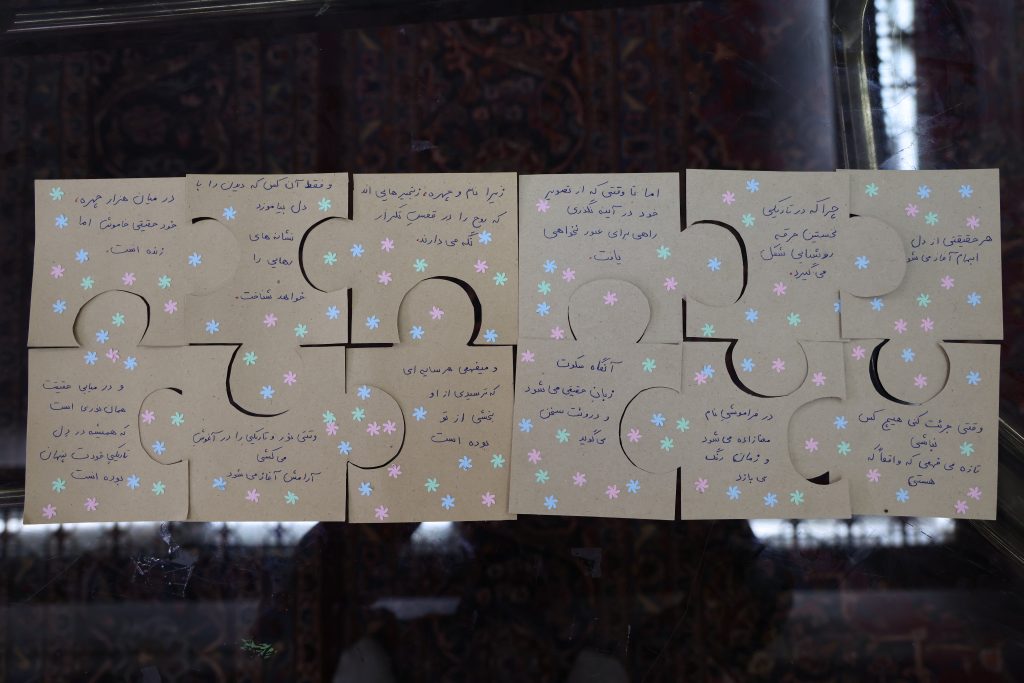 هر حقیقتی از دل
ابهام آغاز می شود
چرا که در تاریکی
نخستین جرقه
روشنایی شکل
می گیرد.
اما تا وقتی که از تصویر
خود در آینه نگذری
راهی برای عبور نخواهی
یافت.
زیرا نام و چهره، زنجیرهایی اند
که روح را در قفس تکرار
نگه می دارند.
و فقط آن کس که دیدن را با
دل بیاموزد
نشانه های
رهایی را
خواهد شناخت.
در میان هزار چهره،
خود حقیقی خاموش اما
زنده است.
وقتی جرئت کنی هیچ کس
نباشی
تازه می فهمی که واقعاً که
هستی
در فراموشی نام
معنا زاده می شود
و زمان رنگ
می بازد
آنگاه سکوت
زبان حقیقی می شود
و درونت سخن
می گوید
و میفهمی هر سایه ای
که ترسیدی از او
بخشی از تو
بوده است
وقتی نور و تاریکی را در آغوش
می کشی
آرامش آغاز می شود
و در میابی حقیقت
همان نوری است
که همیشه در دل
تاریکی خودت پنهان
بوده است